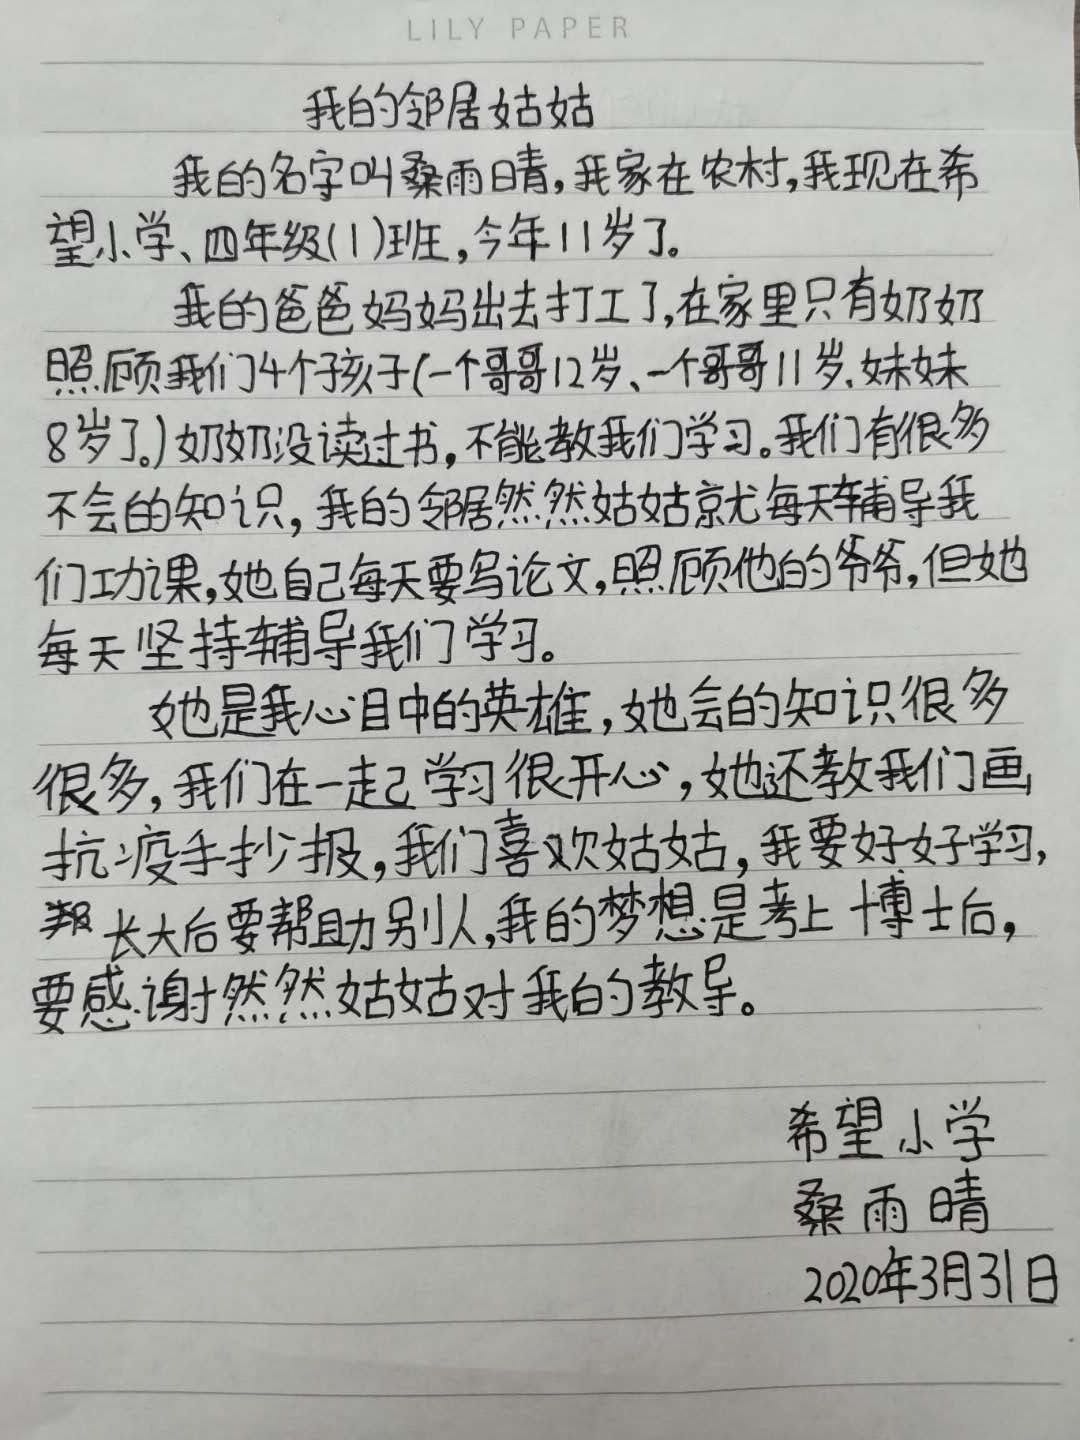 LILY PAPER
我的邻居姑姑
我的名字叫桑雨晴,我家在农村,我现在希
望小学、四年级(1)班,今年11岁了。
我的爸爸妈妈出去打工了,在家里只有奶奶
照顾我们4个孩子(一个哥哥12岁、一个哥哥11岁、妹妹
8岁了。)奶奶没读过书,不能教我们学习。我们有很多
不会的知识,我的邻居然然姑姑就每天辅导我
们功课,她自己每天要写论文,照顾他的爷爷,但她
每天坚持辅导我们学习。
她是我心目中的英雄,她会的知识很多
很多,我们在一起学习很开心,她还教我们画
抗疫手抄报,我们喜欢姑姑,我要好好学习,
长大后要帮助别人,我的梦想是考上博士后,
要感谢然然姑姑对我的教导。
希望小学
桑雨晴
2020年3月31日